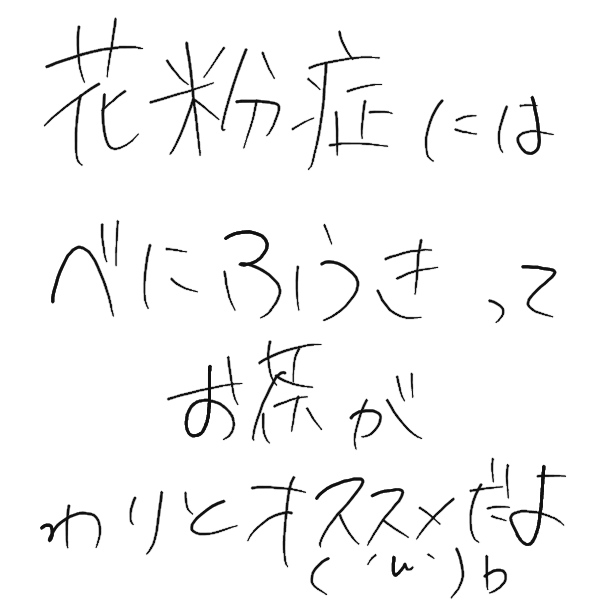 花粉症には
べにふうきって
お茶が
わりとオススメだよ
(´ω｀)b